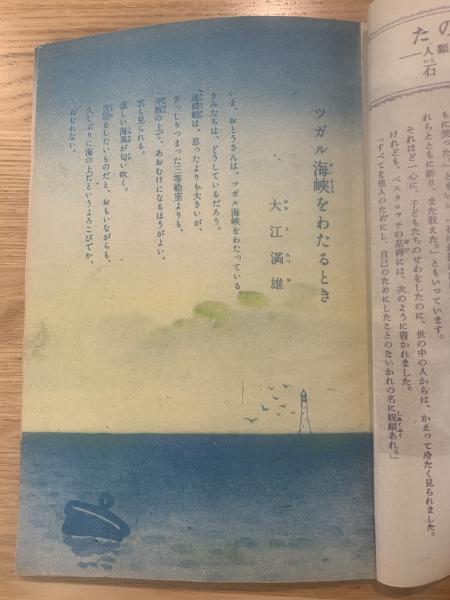 の
た
人類
一石
もに笑った。ともいい、
れらとともに祈り、また教えた。」ともいっています。
それほど一心に、子どもたちのせわをしたのに、世の中の人からは、かえって冷たく見られました。
けれども、ペスタロッチの墓碑には、次のように書かれました。
「すべてを他人のためにし、自己のためにしたことのないかれの名に祝福あれ。」
ツガル海峡をわたるとき
大江満雄
いま、おとうさんは、ツガル海峡をわたっている
きみたちは、どうしているだろう。
連絡船は、思ったよりも大きいが、
ぎっしりつまった三等船室よりも、
甲板の上で、あおむけになるほうがよい。
雲も見られる。
涼しい海風が匂い吹く。
昼寝をしたいものだと、おもいながらも、
久しぶりに海の上だというよろこびでか、
ねむれない。